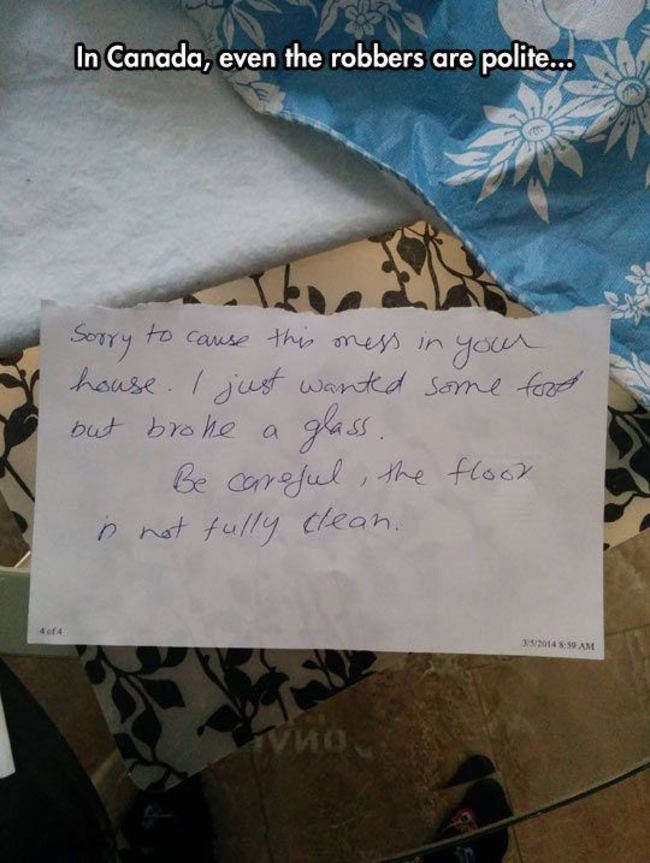 In Canada, even the robbers are polite...
Sorry to cause this mess in your
house. I just wanted some food
but broke a glass.
Be careful, the floor
is not fully clean.
4 of 4
3/5/2014 8:59 AM